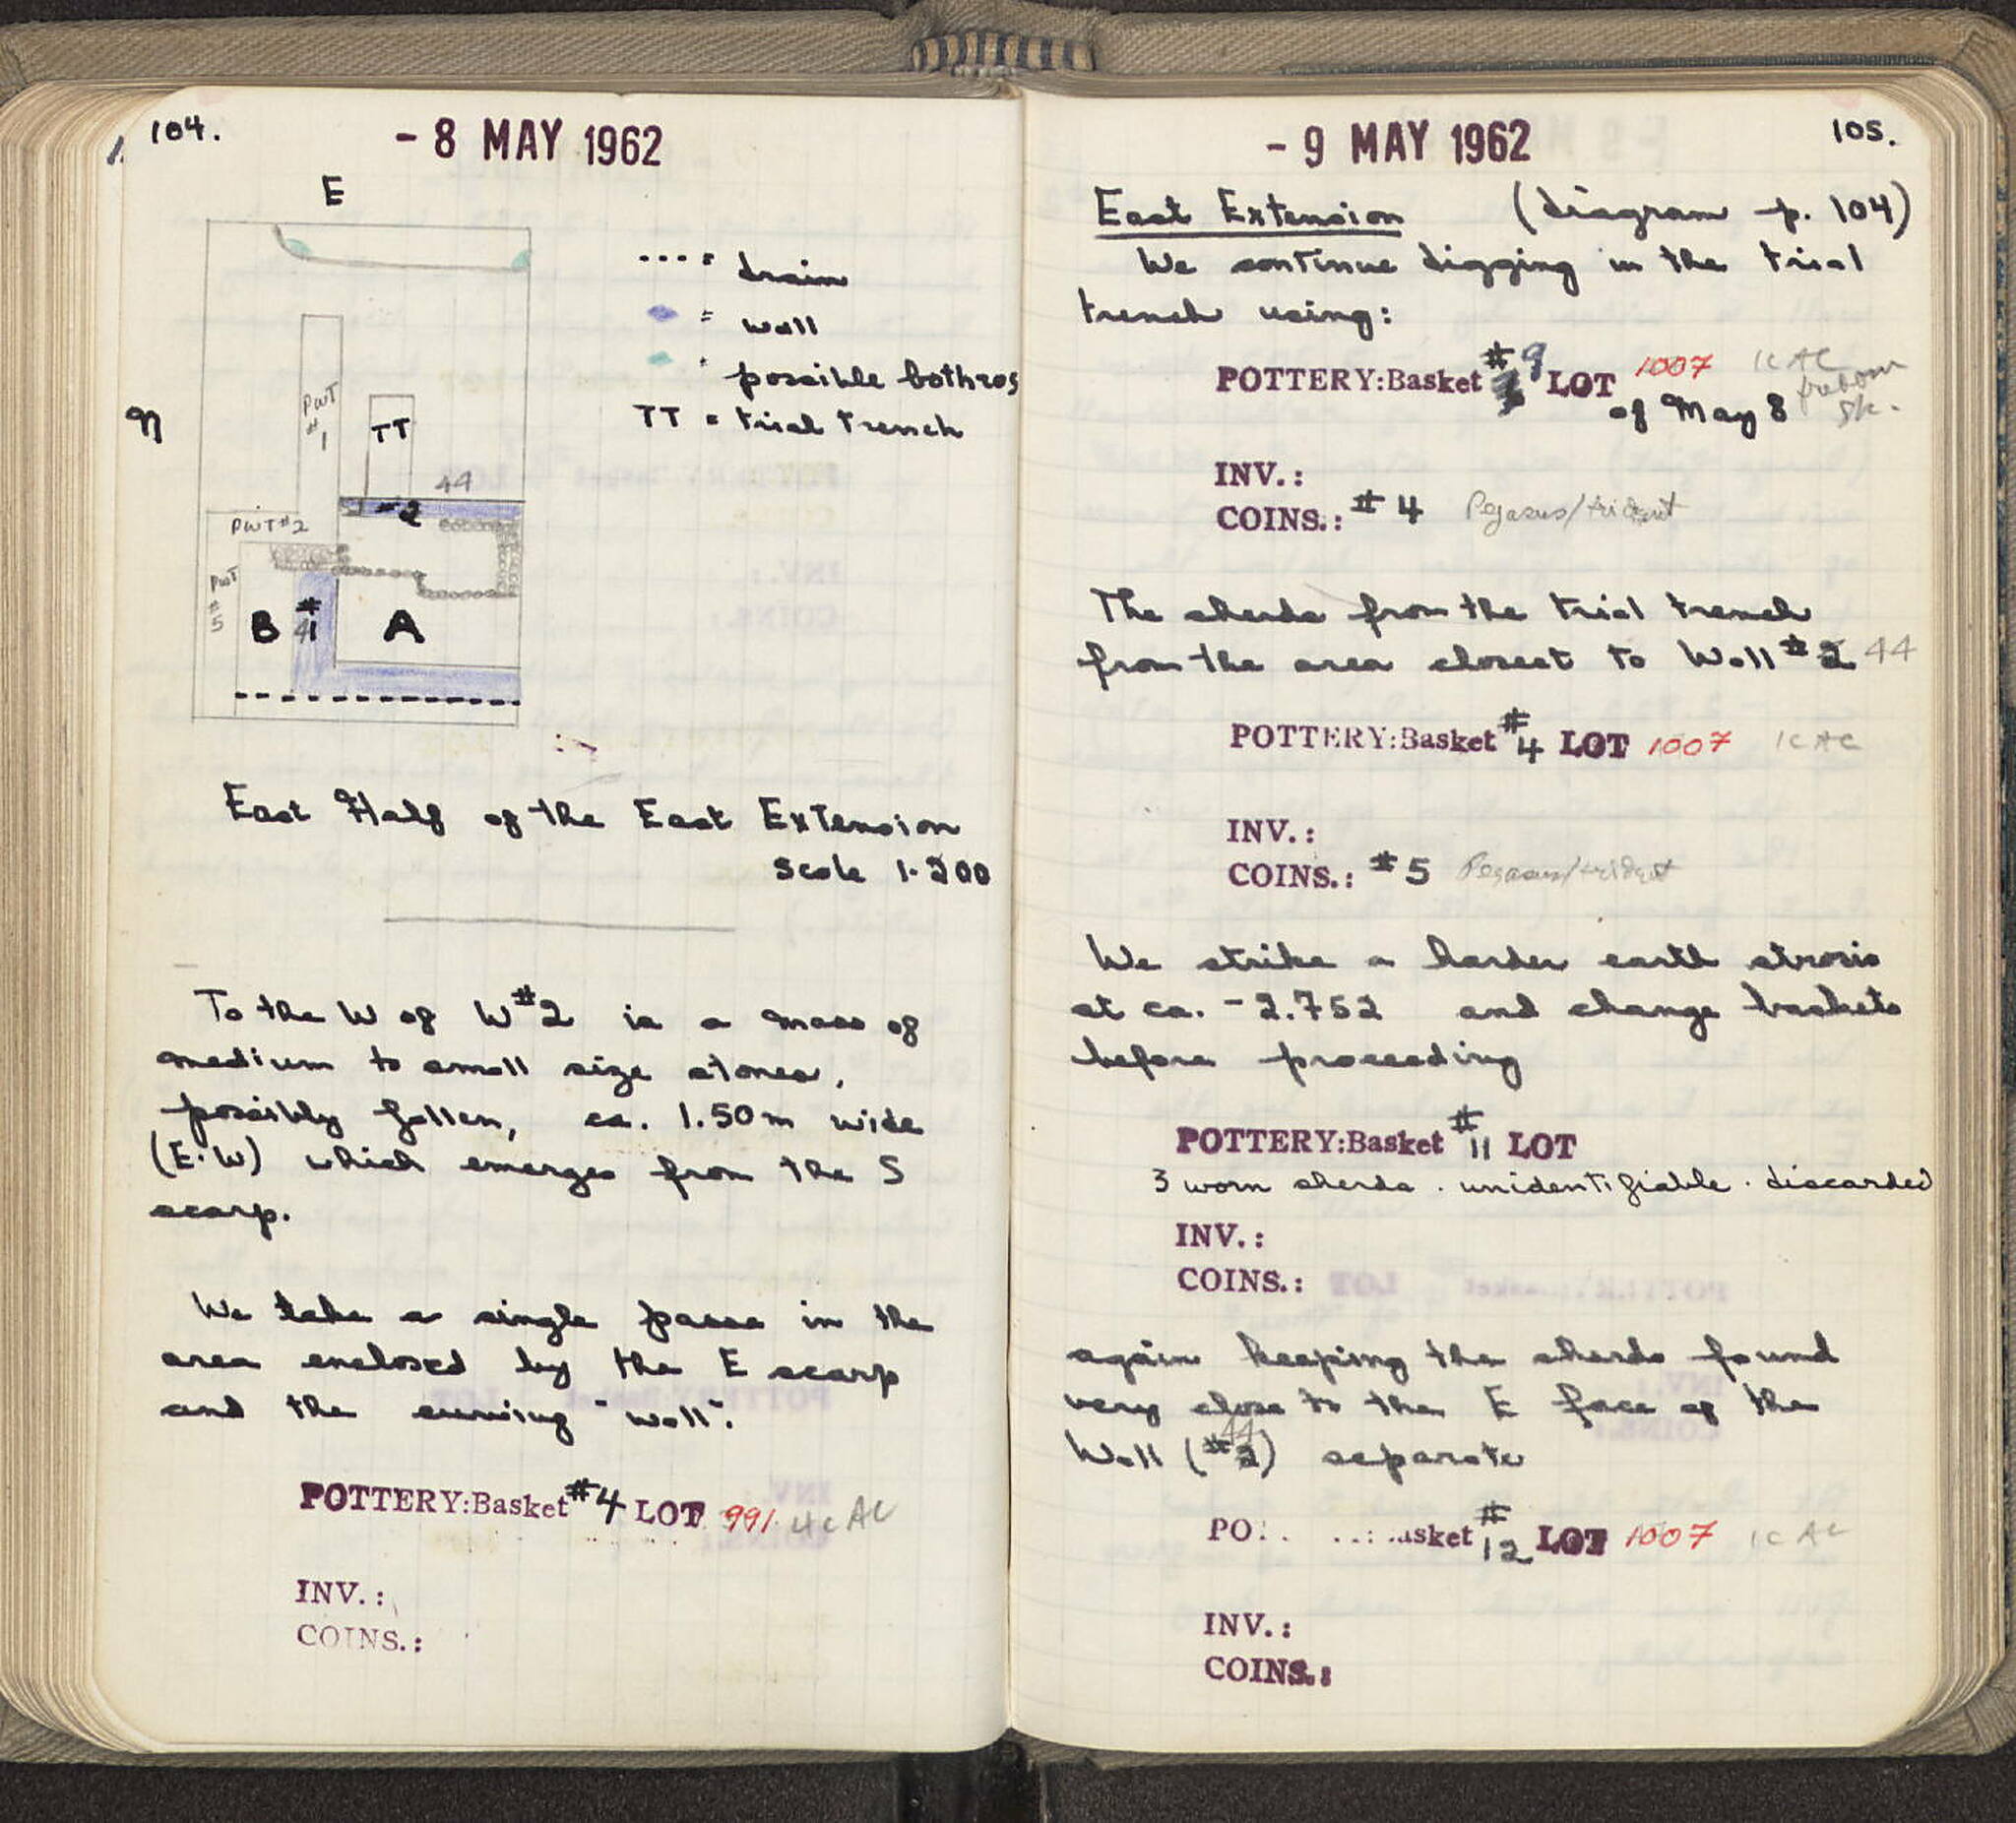 104.
- 8 MAY 1962
E
.... = drain
= wall
= possible bothros
TT = trial trench
N
PWT
#
1
TT
44
#2
PWT #2
PWT
#
5
B
#
1
A
East Half of the East Extension
Scale 1.200
To the W of W#2 is a mass of
medium to small size stones,
possibly fallen, ca. 1.50m wide
(E-W) which emerges from the S
scarp.
We take a single passe in the
area enclosed by the E scarp
and the curving "wall".
POTTERY:Basket #4 LOT 991. 4c AC
INV.:
COINS.:
- 9 MAY 1962
105.
East Extension (diagram p. 104)
We continue digging in the trial
trench using:
POTTERY:Basket #9 LOT 1007 1c AC
of May 8
INV.:
COINS.: #4 Pegasus/trident
The sherds from the trial trench
from the area closest to Wall #2 44
POTTERY:Basket #4 LOT 1007 1c AC
INV.:
COINS.: #5 Pegasus/trident
We strike a harder earth strosis
at ca. -2.752 and change baskets
before proceeding
POTTERY:Basket #11 LOT
3 worn sherds . unidentifiable . discarded
INV.:
COINS.:
again keeping the sherds found
very close to the E face of the
44
Wall (#2) separate
PO.. ...:.asket #12 LOT 1007 1c AC
INV.:
COINS.: